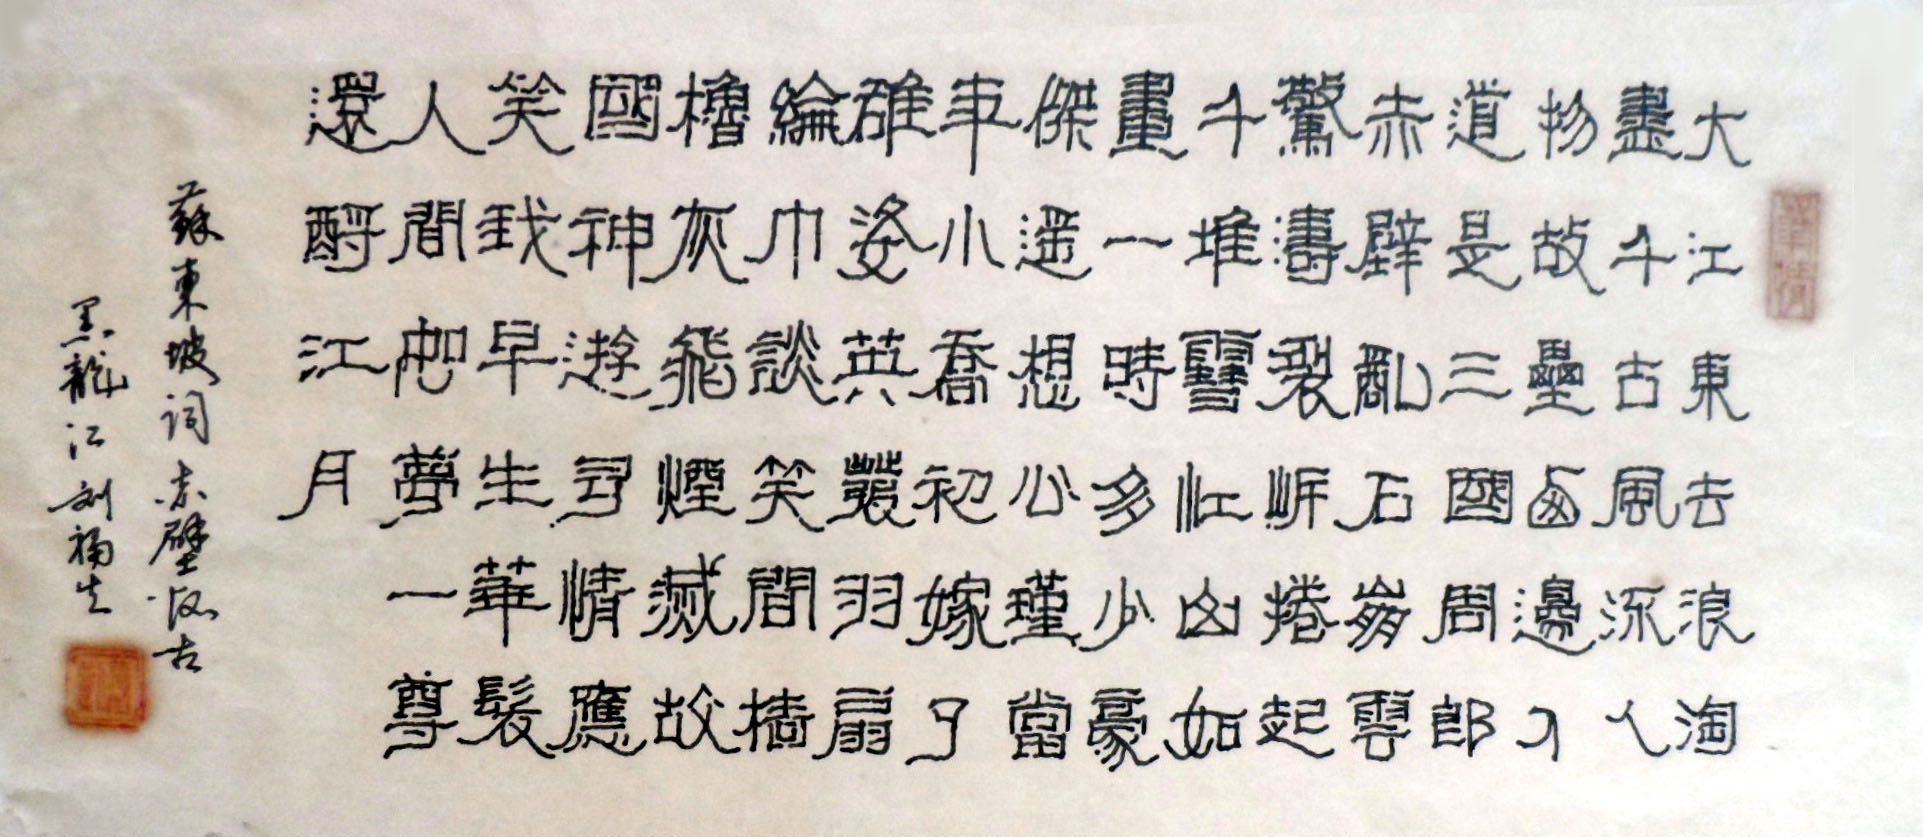 大江東去浪淘
盡千古風流人
物故壘西邊人
道是三國周郎
赤壁亂石崩雲
驚濤裂岸捲起
千堆雪江山如
畫一時多少豪
傑遥想公瑾當
年小喬初嫁了
雄姿英發羽扇
綸巾談笑間檣
櫓灰飛煙滅故
國神遊多情應
笑我早生華髮
人間如夢一尊
還酹江月
蘇東坡詞赤壁懷古
黑龍江刘福生